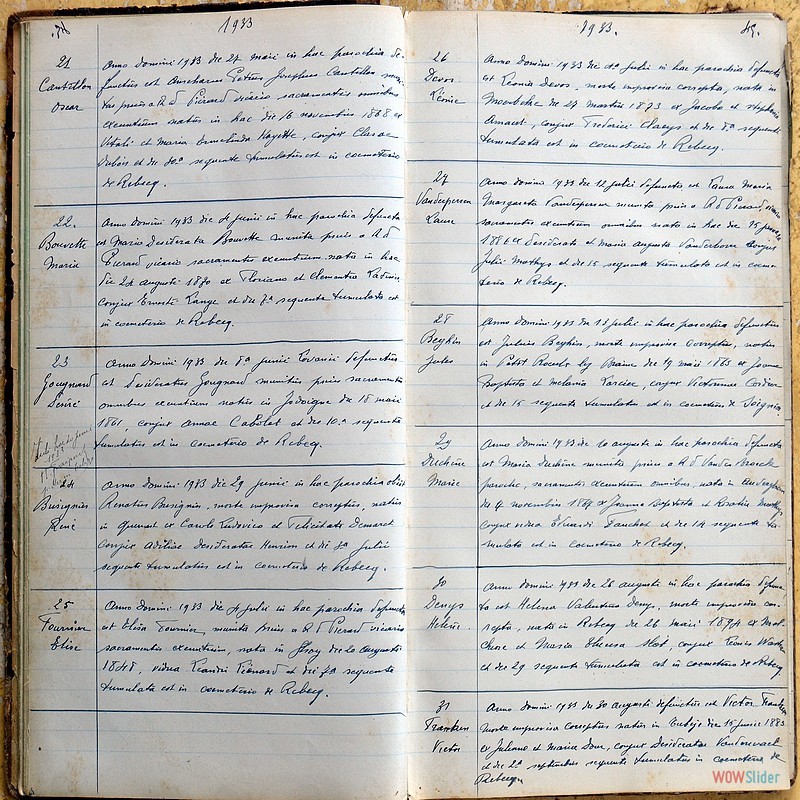 1933
21
Cantillon
Oscar
Anno domini 1933 die 27 maii in hac parochia de-
functus est Petrus Josephus Cantillon muni-
tus prius a R d Pierard vicario sacramentis omnibus
exeuntium natus in hac die 16 novembris 1868 ex
Vitali et Maria Ermelinda Hayette, conjux Clarae
Dubois et die 30a sequente tumulatus est in coemeterio
de Rebecq.
22.
Bouvette
Maria
Anno domini 1933 die junii in hac parochia defuncta
est Maria Desiderata Bouvette munita prius a R d
Pierard vicario sacramentis exeuntium nata in hac
die 24 augusti 1880 ex Floriano et Clementia
conjux Ernesti Lange et die 7a sequente tumulata est
in coemeterio de Rebecq.
23
Gougnard
Désiré
Anno domini 1933 die 8a junii Lovanii defunctus
est Desideratus Gougnard munitus prius sacramentis
omnibus exeuntium natus in Jodoigne die 18 maii
1861, conjux Annae Cabolet et die 10.a sequente
tumulatus est in coemeterio de Rebecq.
24
Busignies
René
Anno domini 1933 die 29 junii in hac parochia obiit
Renatus Busignies, morte improvisa correptus, natus
in Quenast ex Carolo Ludovico et Felicitate Demaret
conjux Adiliae Desideratae Henrion et die 3a julii
sequente tumulatus est in coemeterio de Rebecq.
25
Fournier
Elise
Anno Domini 1933 die julii in hac parochia defuncta
est Elisa Fournier, munita prius a R d Pierard vicario
sacramentis exeuntium, nata in die 20 augusti
1848, vidua Leandri Piénard et die 7a sequente
tumulata est in coemeterio de Rebecq.
1933.
26
Devos
Léonie
Anno Domini 1933 die julii in hac parochia defuncta
est Léonia Devos, morte improvisa correpta, nata in
Moerbeke die 27 martii 1873 ex Jacobo et Stephania
Arnaert, conjux Frederici Claeys et die 8.a sequente
tumulata est in coemeterio de Rebecq.
27
Vanderperren
Laure
Anno domini 1933 die 12 julii defuncta est Laura Maria
Margareta Vanderperren munita prius a R d Pierard, vicario
sacramentis exeuntium omnibus nata in hac die 15
1886 ex Desiderato et Maria Augusta Vanderboren conjux
Julii Mathys et die 15 sequente tumulata est in coeme-
terio de Rebecq.
28
Beghin
Jules
Anno Domini 1933 die 13 julii in hac parochia defunctus
est Julius Beghin, morte improvisa correptus, natus
in Petit Roeulx lez Braine die 19 maii 1863 ex Joanne
Baptista et Melania Tarcier, conjux Victorinae Cordier
et die 15 sequente tumulatus est in coemeterio de Soignies
29
Duchêne
Marie
Anno Domini 1933 die 10 augusti in hac parochia defuncta
est Maria Duchêne munita prius a R d Vanden Broeck
parocho, sacramentis exeuntium omnibus, nata in
die 4 novembris ex Joanne Baptista et Rosalia
conjux vidua Eduardi Danchot et die 14 sequente tu-
mulata est in coemeterio de Rebecq.
30
Denys
Helène.
Anno Domini 1933 die 26 augusti in hac parochia defunc-
ta est Helena Valentina Denys, morte improvisa cor-
repta, nata in Rebecq die 26 maii 1894 ex Mel-
chiore et Maria Theresa conjux Léonis
et die 29 sequente tumulata est in coemeterio de Rebecq
31
Franken
Victor
Anno Domini 1933 die 30 augusti defunctus est Victor Franken
morte improvisa correptus natus in Tubize die 15 junii 1883
ex Juliano et Maria conjux Desideratae
et die 2a septembris sequente tumulatus in coemeterio de
Rebecq.
WOWSlider